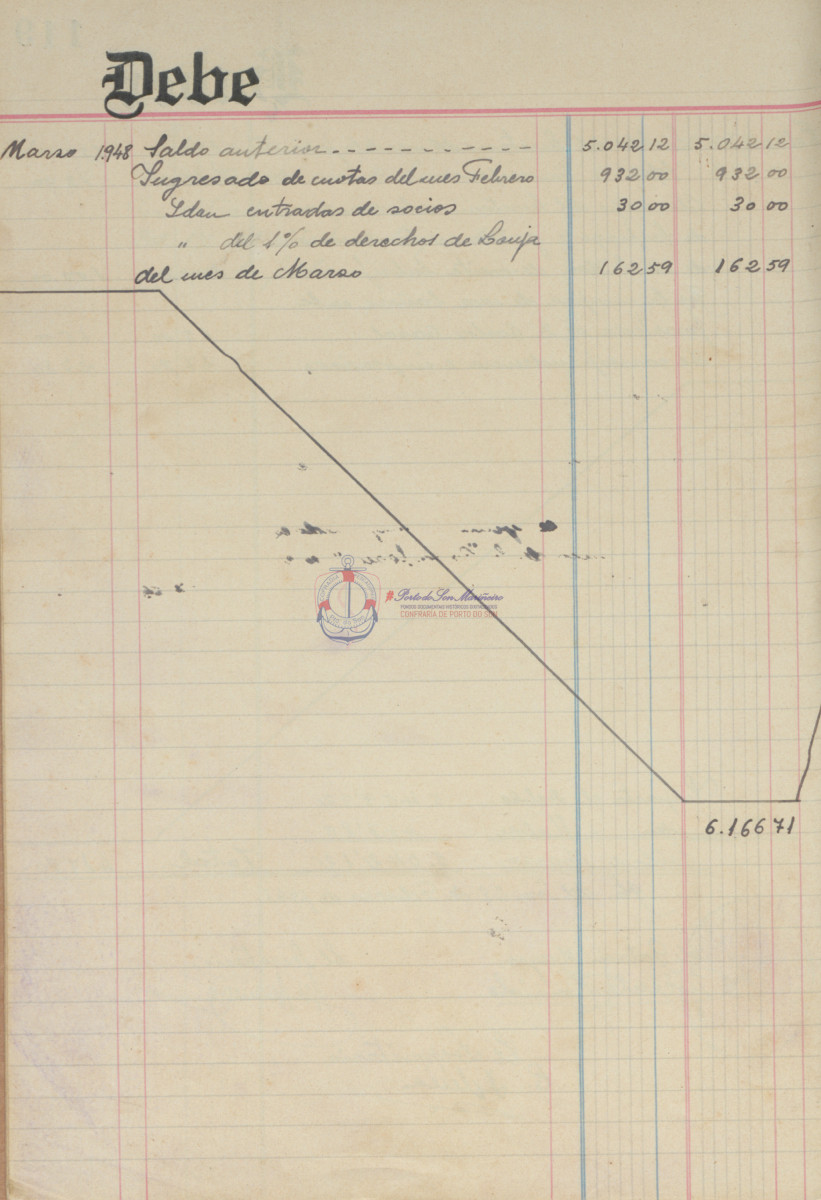 Debe
Marzo 1948 Saldo anterior - - - - - - - - - - - 5.042 12 5.042 12
Ingresado de cuotas del mes Febrero 932 00 932 00
Idem entradas de socios 30 00 30 00
" del 1% de derechos de Lonja
del mes de Marzo 162 59 162 59
#PortodoSonMariñeiro
FONDOS DOCUMENTAIS HISTÓRICOS DIXITALIZADOS
CONFRARÍA DE PORTO DO SON
6.166 71